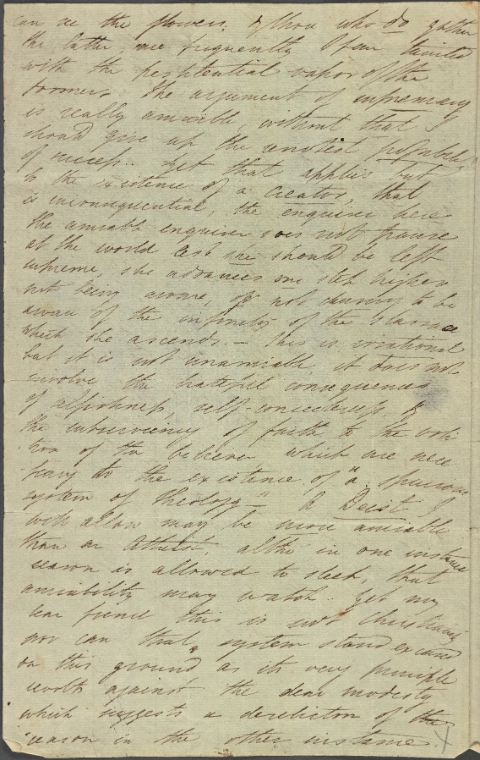 can see the flowers. & those who do gather
the latter, are frequently I fear tainted
with the pestilential vapor of the
former. The argument of supremacy
is really amiable without that I
should give up the
of necess. Yet that applies but
to the existence of a creator, that
is inconsequential, the enquirer here
the amiable enquirer does not pause
at the world lest she should be left
supreme, she advances one step higher
not being aware, or not choosing to be
aware of the infinity of the staircase
which she ascends — this is irrational
but it is not unamiable, it does not
involve the hateful consequences
of selfishness, self-conceitedness &
the subserviency of faith to the voli
tion of the believer which are nece
ssary to the existence of "a spurious
system of theology —" A Deist I
will allow may be more amiable
than an Atheist, altho in one instance
reason is allowed to sleep, that
amiability may watch. Yet my
dear friend this is not Christianity
nor can that system stand excused
on this ground as its very principle
revolts against the dear modesty
which suggests a dereliction of the
reason in the other instance.